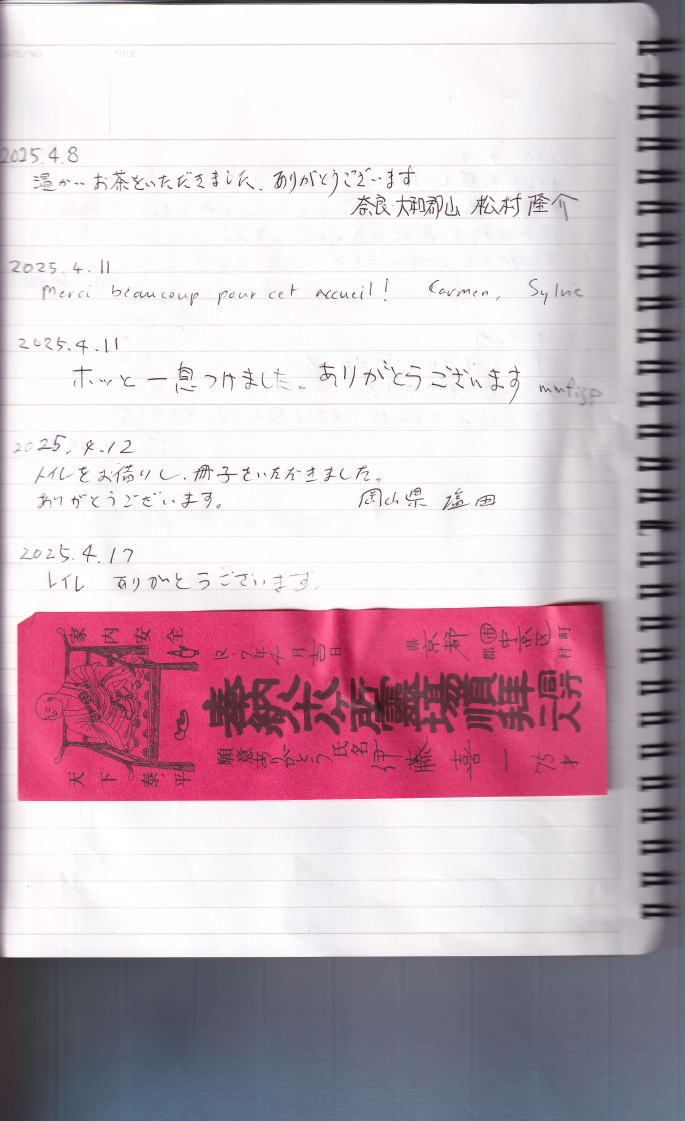 DATE/NO. TITLE
2025.4.8
温かいお茶をいただきました、ありがとうございます
奈良・大和郡山 松村 隆介
2025.4.11
Merci beaucoup pour cet accueil! Carmen, Sylvie
2025.4.11
ホッと一息つけました。ありがとうございます
2025.4.12
トイレをお借りし、冊子をいただきました。
ありがとうございます。 岡山県 塩田
2025.4.17
トイレ ありがとうございます。
家内安全
天下泰平
R.7年4月 日
奉納八十八ヶ所霊場順拝 同行二人
県 京都 郡 市 中京区 町 村
願意 ありがとう 氏名 伊藤喜一 75才